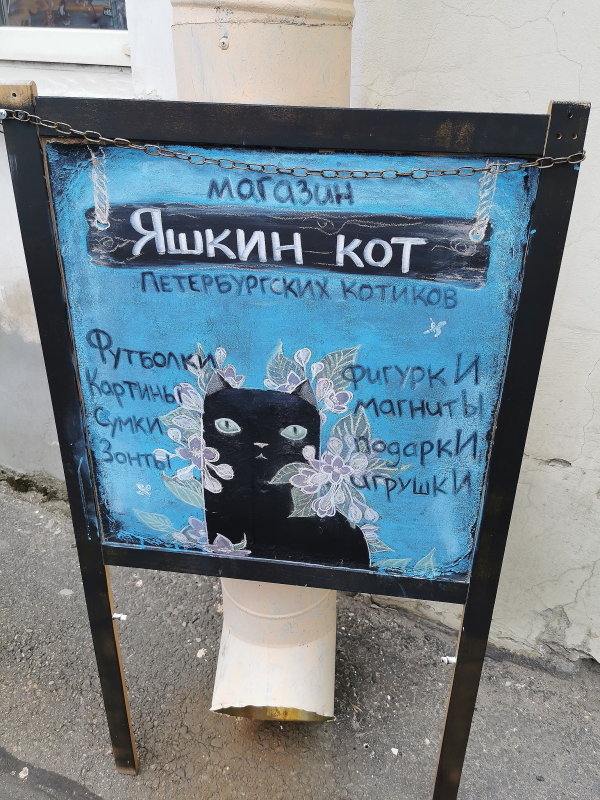 магазин
Яшкин кот
Петербургских котиков
Футболки
Картины
Сумки
Зонты
фигуркИ
магнитЫ
подаркИ
игрушкИ